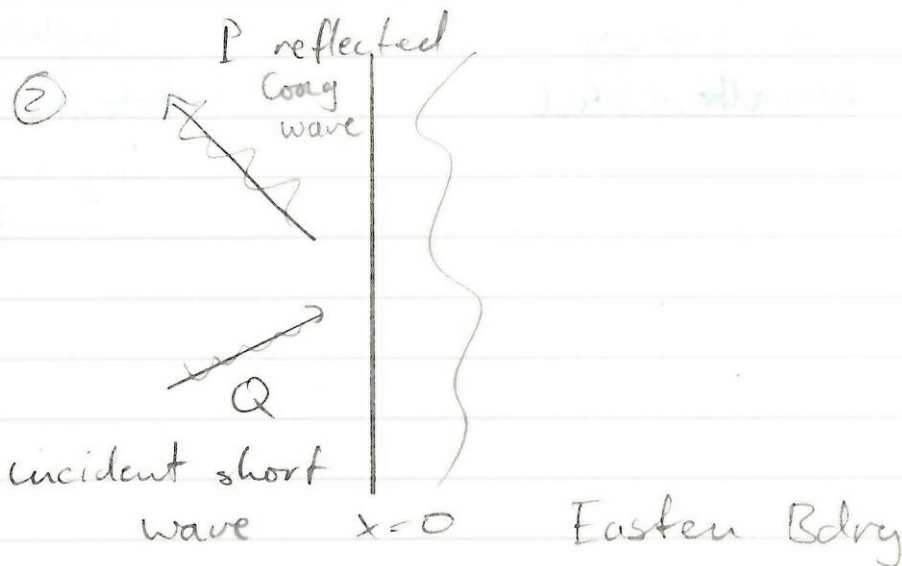 ②
P reflected
Long
wave
Q
incident short
wave
x=0
Eastern Bdry